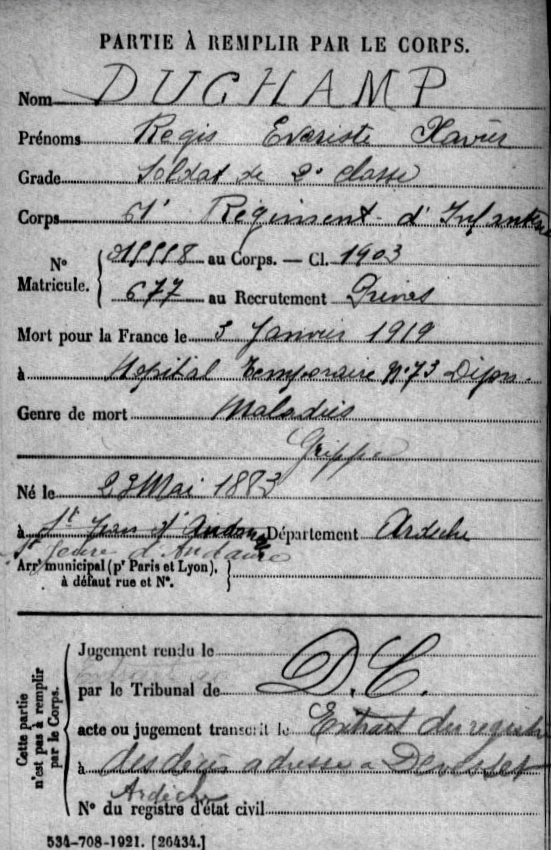 PARTIE À REMPLIR PAR LE CORPS.
Nom DUCHAMP
Prénoms Regis Evariste Xavier
Grade Soldat de 2e classe
Corps 61e Régiment d'Infanterie
No Matricule. au Corps. — Cl. 1903
677 au Recrutement Privas
Mort pour la France le 3 Janvier 1919
à Hopital Temporaire No 73 Dijon.
Genre de mort Maladies
Grippe
Né le 23 Mai 1883
à St Jean d' Département Ardèche
St Jeure d'Andaure
Arrt municipal (pr Paris et Lyon),
à défaut rue et No.
Cette partie n'est pas à remplir par le Corps.
Jugement rendu le
par le Tribunal de D.C.
acte ou jugement transcrit le Extrait du registre
à des décès adressé a Devesset
Ardèche
No du registre d'état civil
534-708-1921. [26434.]